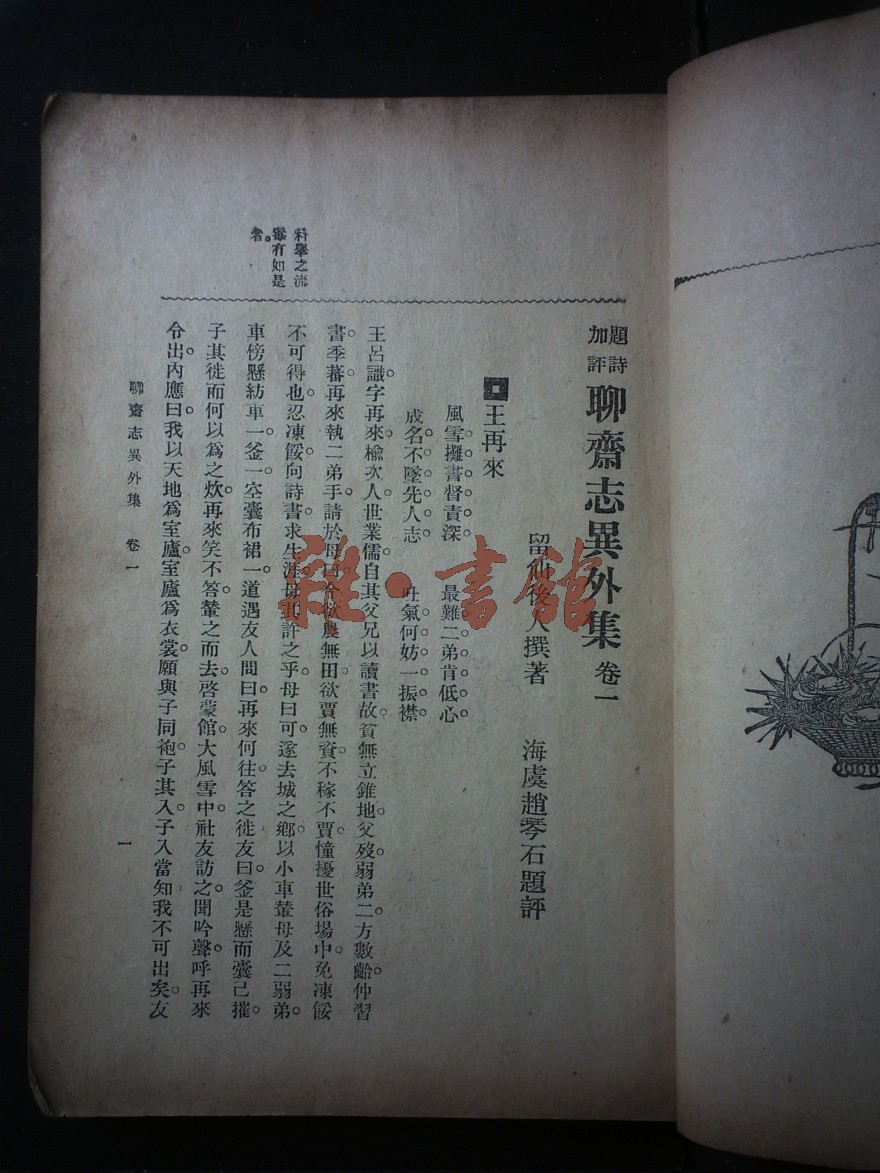 題詩
加評
聊齋志異外集 卷一
留仙後人撰著 海虞趙琴石題評
王再來
風雪攤書督責深。 最難二弟肯低心。
成名不墜先人志 吐氣何妨一振襟。
王呂識字再來。楡次人。世業儒自其父兄以讀書故。貧無立錐地。父歿。弱弟二方數齡。仲習
書。季蕃。再來執二弟手。請於母曰。今欲農無田欲賈無資。不稼不賈。憧擾世俗場中。免凍餒
不可得也。忍凍餒向詩書。求生涯。母其許之乎。母曰可。遂去城之鄉。以小車輦母及二弱弟。
車傍懸紡車一。釜一。空囊布裙一。道遇友人問曰。再來何往。答之徙。友曰。釜是懸而囊已摧。
子其徙而何以為之炊。再來笑不答。輦之而去。啓蒙館。大風雪中。社友訪之。聞吟聲。呼再來
令出。內應曰。我以天地為室廬。室廬為衣裳。願與子同袍。子其入。子入當知我不可出矣。友
科舉之流
毒有如是
者。
聊齋志異外集 卷一
一
雜·書館